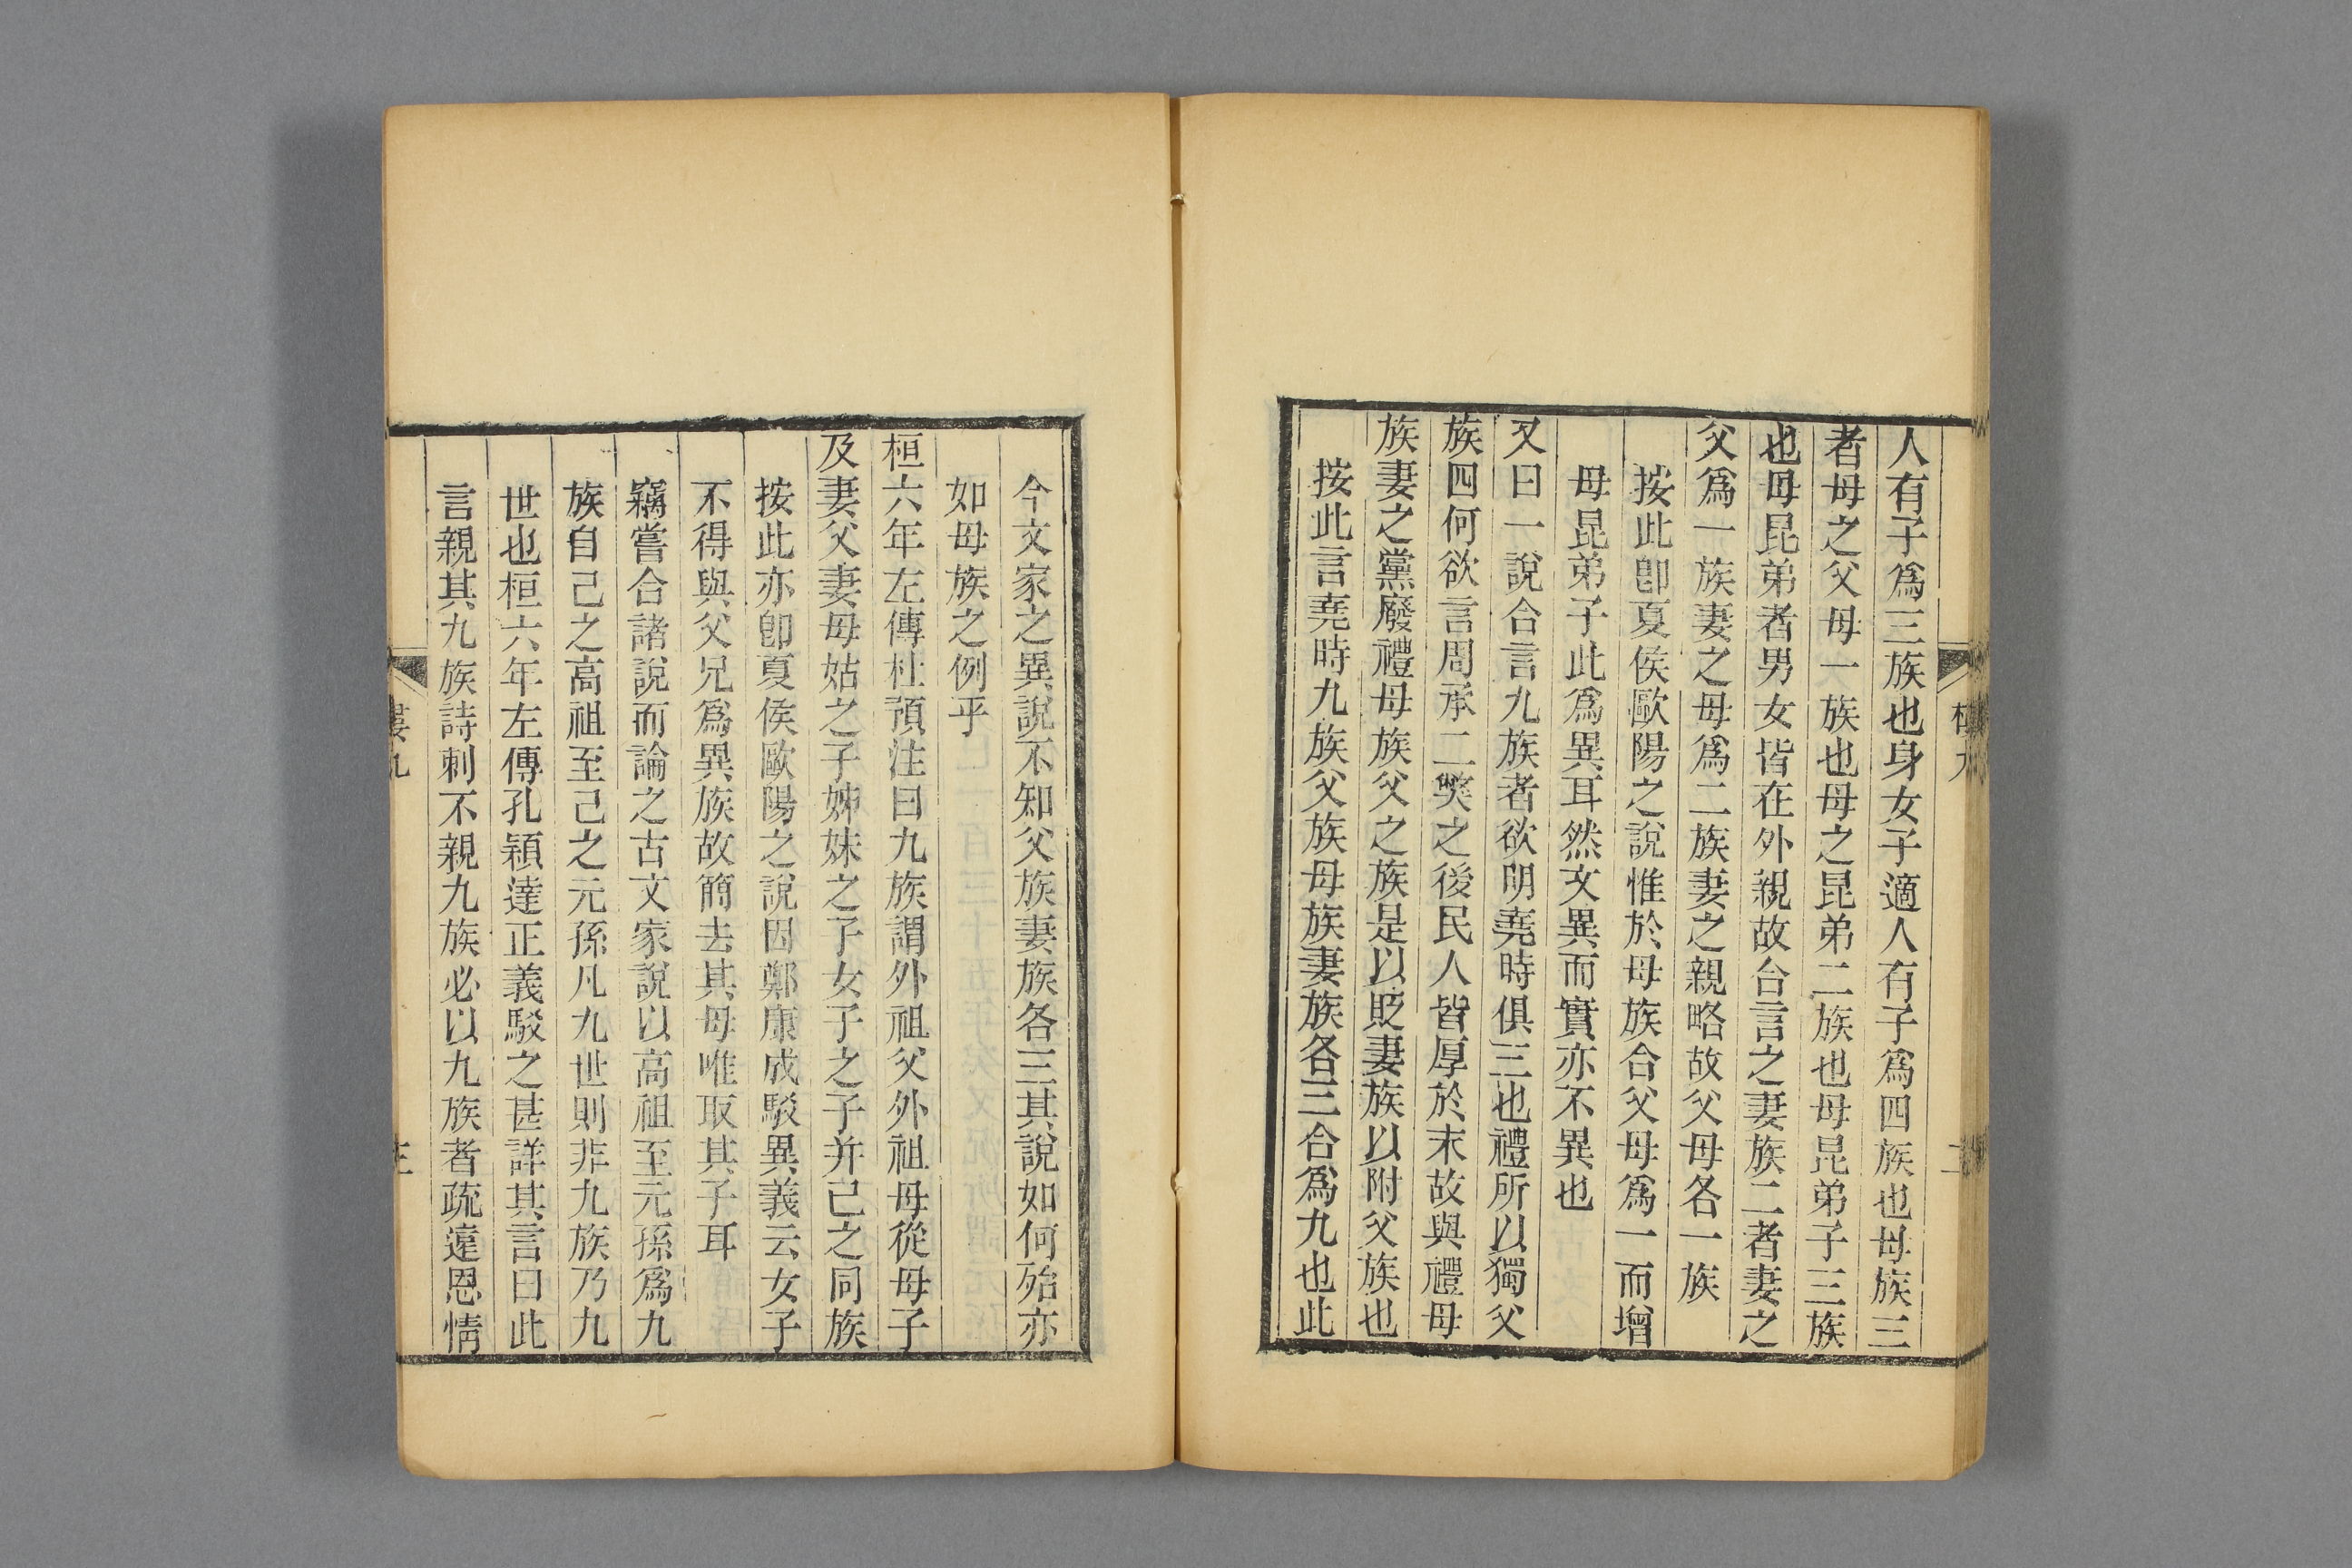 人有子爲三族也身女子適人有子爲四族也母族三
者母之父母一族也母之昆弟二族也母昆弟子三族
也母昆弟者男女皆在外親故合言之妻族二者妻之
父爲一族妻之母爲二族妻之親略故父母各一族
按此卽夏侯歐陽之說惟於母族合父母爲一而增
母昆弟子此爲異耳然文異而實亦不異也
又曰一說合言九族者欲明堯時俱三也禮所以獨父
族四何欲言周承二弊之後民人皆厚於末故與禮母
族妻之黨廢禮母族父之族是以貶妻族以附父族也
按此言堯時九族父族母族妻族各三合爲九也此
今文家之異說不知父族妻族各三其說如何殆亦
如母族之例乎
桓六年左傳杜預注曰九族謂外祖父外祖母從母子
及妻父妻母姑之子姊妹之子女子之子并己之同族
按此亦卽夏侯歐陽之說因鄭康成駁異義云女子
不得與父兄爲異族故簡去其母唯取其子耳
竊嘗合諸說而論之古文家說以高祖至元孫爲九
族自己之高祖至己之元孫凡九世則非九族乃九
世也桓六年左傳孔穎達正義駁之甚詳其言曰此
言親其九族詩刺不親九族必以九族者疏遠恩情